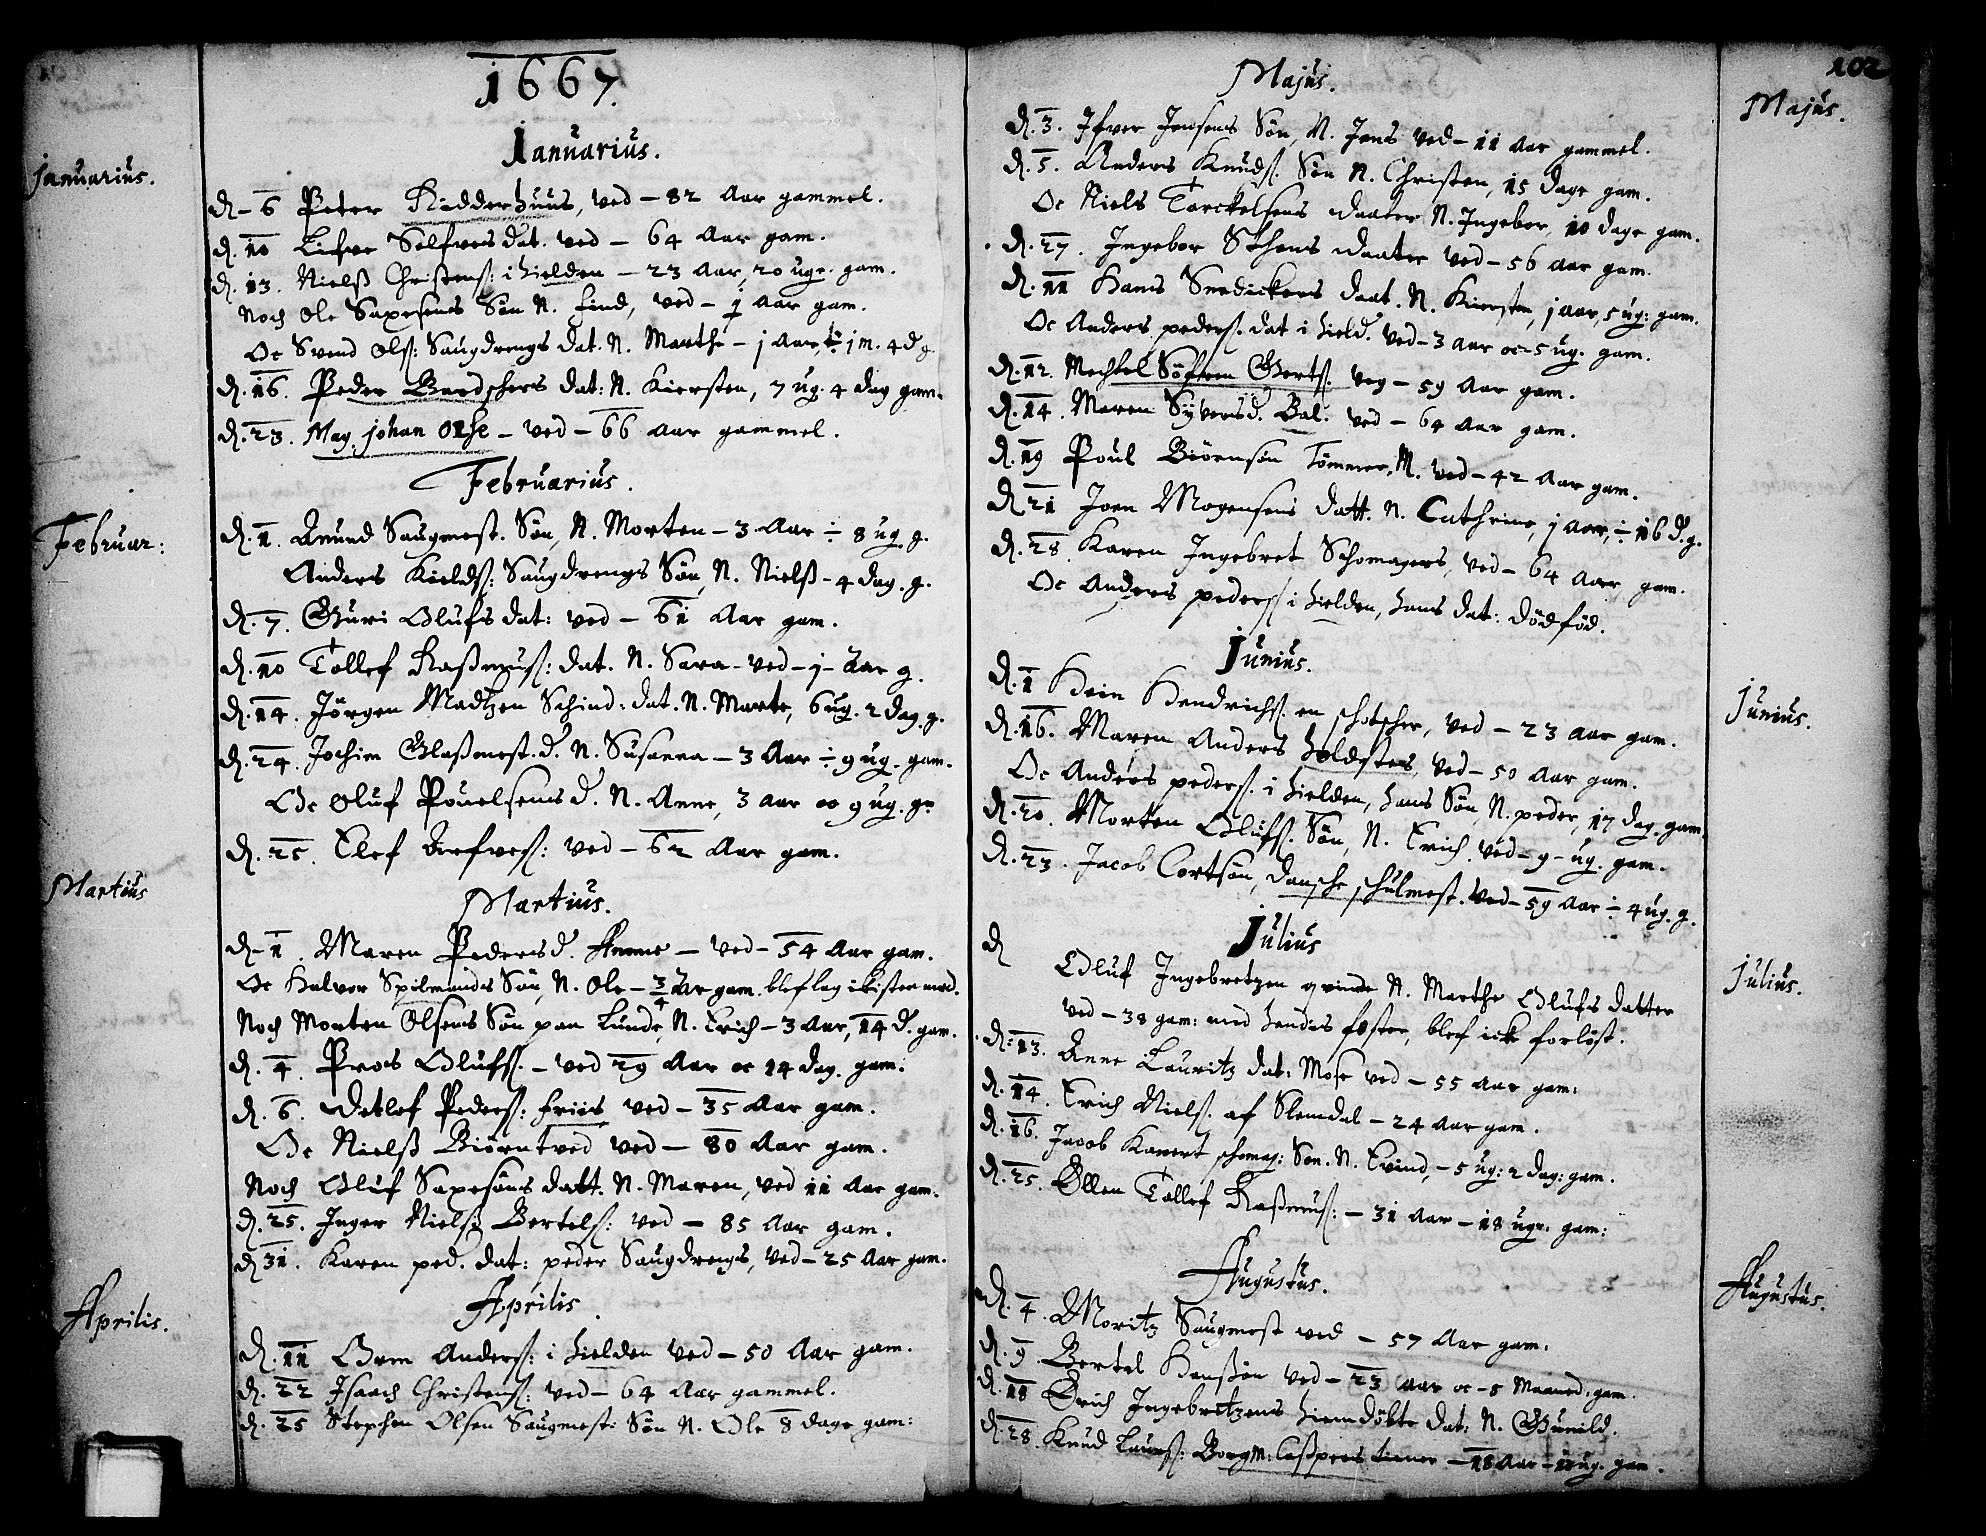 1667.
Januarius.
Januarius.
D. 6 Peter Ridderhuus, ved – 82 Aar gammel.
D. 10 Lifve Solfvers dat. ved – 64 Aar gam.
D. 13. Nielß Christens: i hielden – 23 Aar, 20 uge. gam.
Noch Ole Saxesens Søn N. Find, ved – 1 Aar gam.
Oc Svend Ols: Saugdrengs dat. N. Marthe – 1 Aar, ÷ 1 m. 4 d g.
D. 16. Peder Bardschers dat: N. Kiersten, 7 ug. 4 dag gam.
D. 23. May. johan – ved – 66 Aar gammel.
Februar:
Februarius.
D. 1. Amund Saugmest. Søn, N. Morten – 3 Aar ÷ 8 ug. g.
Anders Kields: Saugdrengs Søn, N. Nielß – 4 dag. g.
D. 7. Guri Olufs dat: ved – 61 Aar gam.
D. 10 Tollef Raßmus: dat. N. Sara – ved – 1 – Aar g.
D. 14. Jørgen Madtzen Schind: dat. N. Marte, 6 ug. 2 dag. g.
D. 24. Jochim Glaßmest. d. N. Susanna – 3 Aar ÷ 9 ug. gam.
Oc Oluf Pouelsens d. N. Anne, 3 aar oc 9 ug. g.
D. 25. Elef ved – 62 Aar gam.
Martius
Martius.
D. 1. Maren Pedersd. – ved – 54 Aar gam.
Oc Halvor Spilmands Søn, N. Ole – 3/4 Aar gam. blef lag i kisten med.
Noch Morten Olsens Søn paa Lunde, N. Erich – 3 Aar, 14 d. gam.
D. 4. Pros Olufs. – ved 29 Aar oc 14 dag. gam:
D. 6. Detlef Peders: Friis ved – 35 Aar gam.
Oc Nielß Biørntved ved – 80 Aar gam.
Noch Oluf Saxesøns datt. N. Maren, ved 11 Aar gam.
D. 25. Inger Niels Bertels: ved – 85 Aar gam.
D. 31. Karen ped. dat: peder Saugdrengs, ved – 25 Aar gam.
Aprilis.
Aprilis
D. 11 Gvm Anders: i hielden ved – 50 Aar gam.
D. 22 Isaach Christens: ved – 64 Aar gammel.
D. 25 Stephen Olsen Saugmest: Søn N. Ole 8 dage gam:
102
Majus.
Majus.
D. 3. Ifver Jensens Søn, N. Jens ved – 11 Aar gammel.
D. 5. Anders Knuds: Søn N. Christen, 15 dage gam.
Oc Niels Torckelsens daater N. Ingebor, 10 dage gam.
D. 27. Ingebor Sthens daater ved – 56 Aar gam.
D. 11 Hans Snedickers daat. N. Kiersten, 1 aar, 5 ug: gam.
Oc Anders peders. dat i hield. ved – 3 aar oc 5 ug. gam.
D. 12. Mechtel Søfren Gerts: veg – 59 Aar gam.
D. 14. Maren Syversd. Bal: ved – 64 Aar gam.
D. 19 Poul Biørnsøn Tømmer. M. ved – 42 Aar gam.
D. 21 Joen Mogensens datt. N. Cathrine, 1 aar, ÷ 16 d. g.
D. 28. Karen Ingebret Schomagers, ved – 64 Aar gam.
Oc Anders peders: i hielden, hans dat: dødfød.
Junius.
Junius.
D. 1 Hein Hendrichs. en schotscher, ved – 23 aar gam.
D. 16. Maren Anders holdsters, ved – 50 Aar gam.
Oc Anders peders. i hielden, hans Søn, N. peder, 17 dag. gam.
D. 20. Morten Olufs. Søn, N. Erich. ved – 9 – ug. gam.
D. 23. Jacob Cortsøn, dansche schulmest. ved – 59 Aar ÷ 4 ug. g.
Julius.
Julius
D Oluf Ingebretzen qvinde N. Marthe Olufs datter
ved – 38 gam: med hendis foster, blef icke forløst.
D. 13. Anne Lauritz dat: Mose ved – 55 Aar gam:
D. 14. Erich Niels. af Slemdal – 24 Aar gam.
D. 16. Jacob Kanert schomag: Søn. N. Evind, – 5 ug: 2 dag: gam.
D. 25. Ellen Tollef Raßmus: – 31 Aar – 18 uge. gam:
Augustus.
Augustus.
D. 4. Moritz Saugmest ved – 57 Aar gam.
D. 9. Bertel Hanßøn ved – 23 aar oc – 8 Maaned. gam.
D. 18 Erich Ingebretzens hiemdøbte dat: N. Gunild.
D. 28. Knud Laurs: Borgm: Caßpers tiener – 18 Aar – ug. gam.